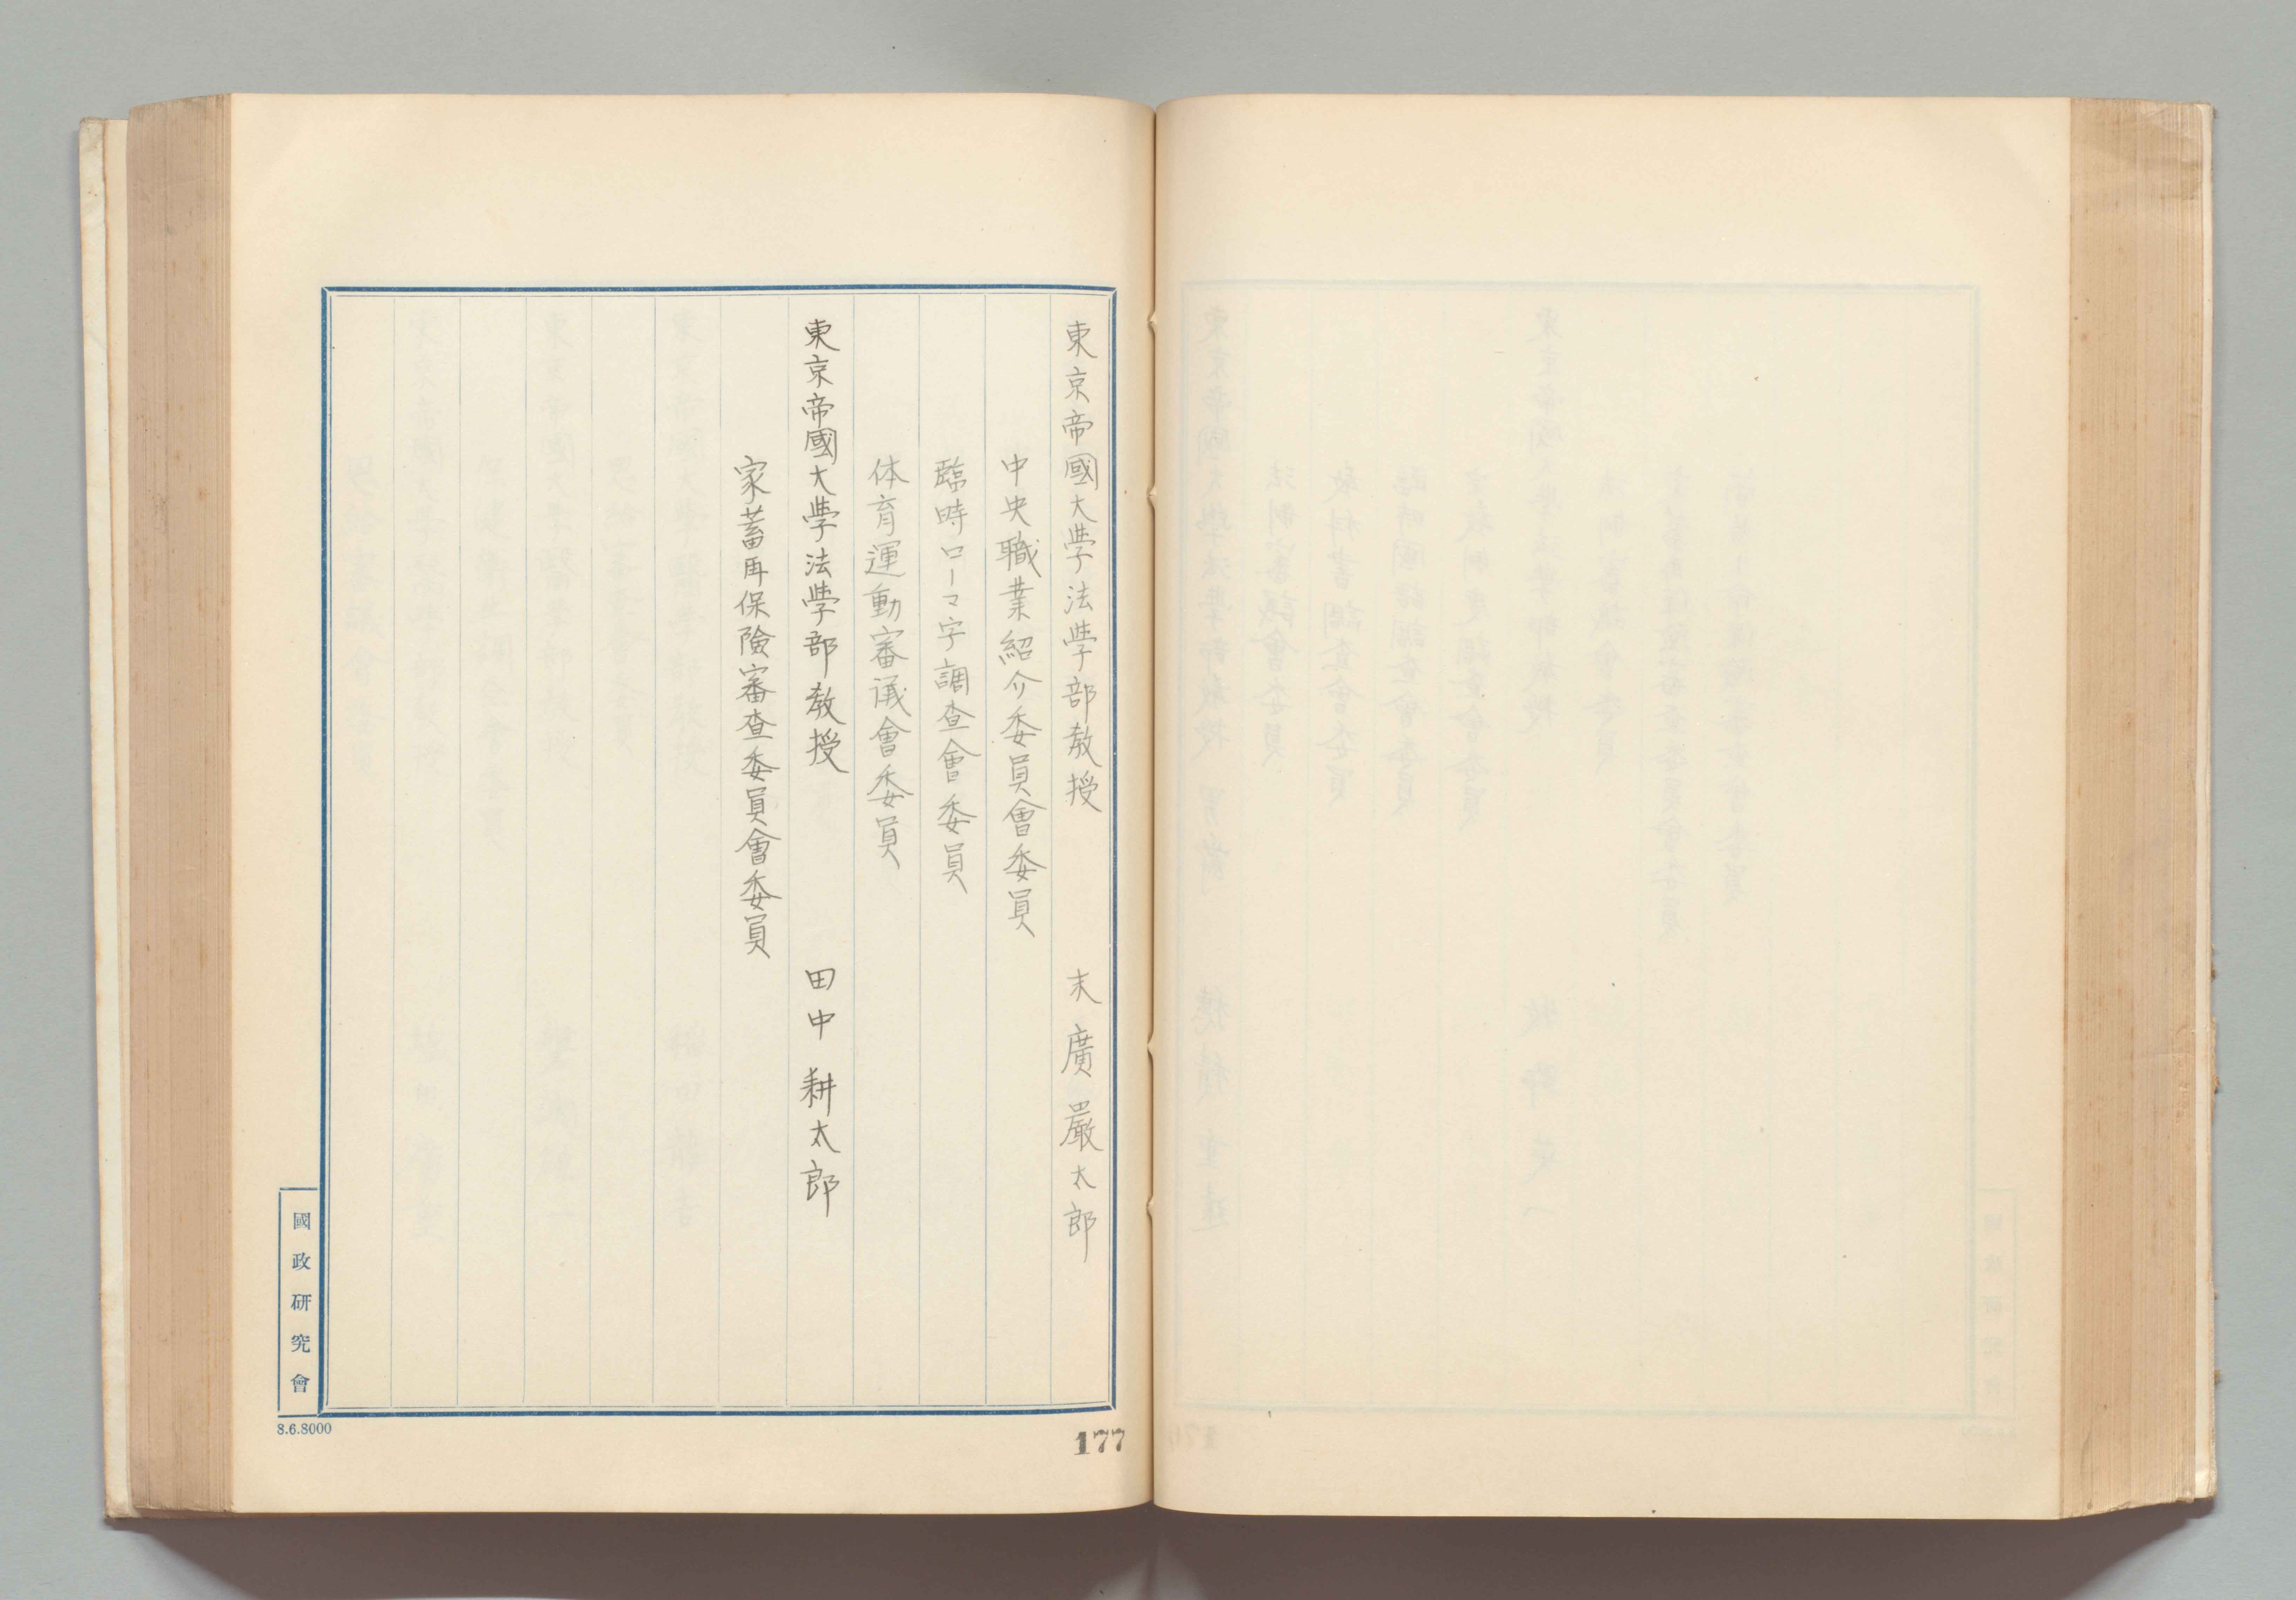 東京帝國大學法學部教授 末廣嚴太郎
中央職業紹介委員會委員
臨時ローマ字調査會委員
体育運動審議會委員
東京帝國大學法學部教授 田中耕太郎
家蓄再保險審査委員會委員
國政研究會
8.6.8000
177